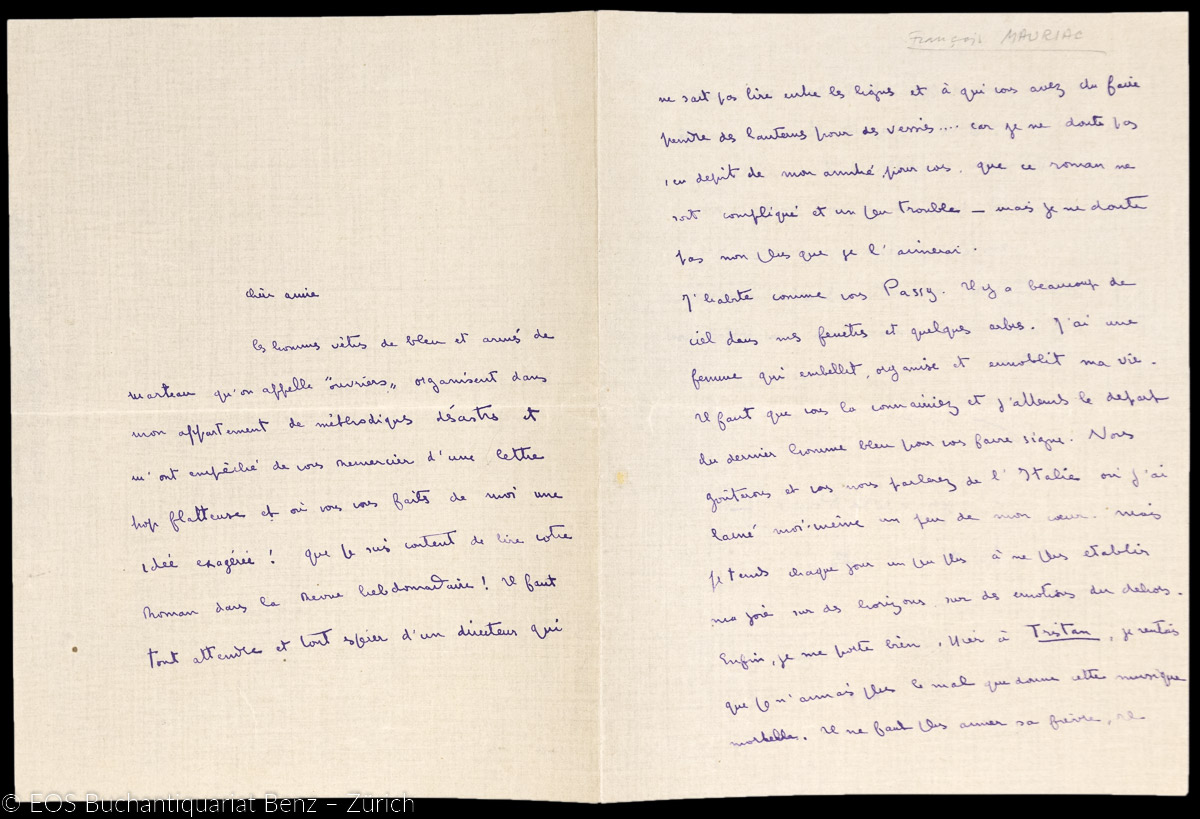 Chère amie
les hommes vêtus de bleu et armés de
marteau qu'on appelle "ouvriers" organisent dans
mon appartement de méthodiques désastres et
m'ont empêché de vous remercier d'une lettre
trop flatteuse et où vous vous faites de moi une
idée exagérée ! que je suis content de lire votre
Roman dans la Revue hebdomadaire ! Il faut
tout attendre et tout espérer d'un directeur qui
François MAURIAC
ne sait pas lire entre les lignes et à qui vous avez du faire
prendre des lanternes pour des vessies.... car je ne doute pas
, en dépit de mon amitié pour vous, que ce roman ne
soit compliqué et un peu trouble – mais je ne doute
pas non plus que je l'aimerai.
J'habite comme vous Passy. Il y a beaucoup de
ciel dans mes fenêtres et quelques arbres. J'ai une
femme qui embellit, organise et ennoblit ma vie.
Il faut que vous la connaissiez et j'attends le départ
du dernier homme bleu pour vous faire signe. Nous
goûterons et vous nous parlerez de l'Italie où j'ai
laissé moi-même un peu de mon cœur. Mais
je tends chaque jour un peu plus à ne plus établir
ma joie sur des horizons, sur des émotions du dehors.
Enfin, je me porte bien. Hier à Tristan, je sentais
que je n'aimais plus le mal que donne cette musique
morbide. Il ne faut plus aimer sa fièvre, et
© EOS Buchantiquariat Benz – Zürich